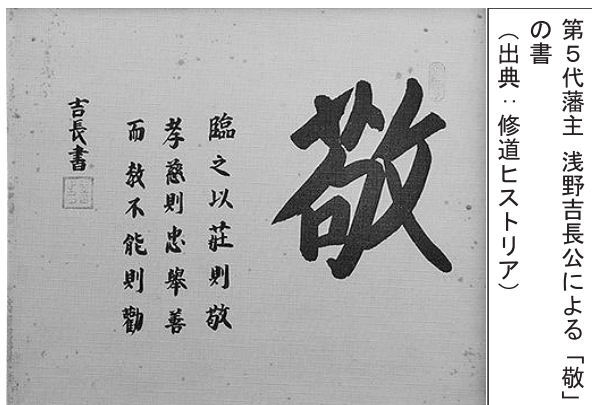 第５代藩主 浅野吉長公による「敬」
の書
（出典：修道ヒストリア）
敬
臨之以莊則敬
孝慈則忠舉善
而教不能則勸
吉長書